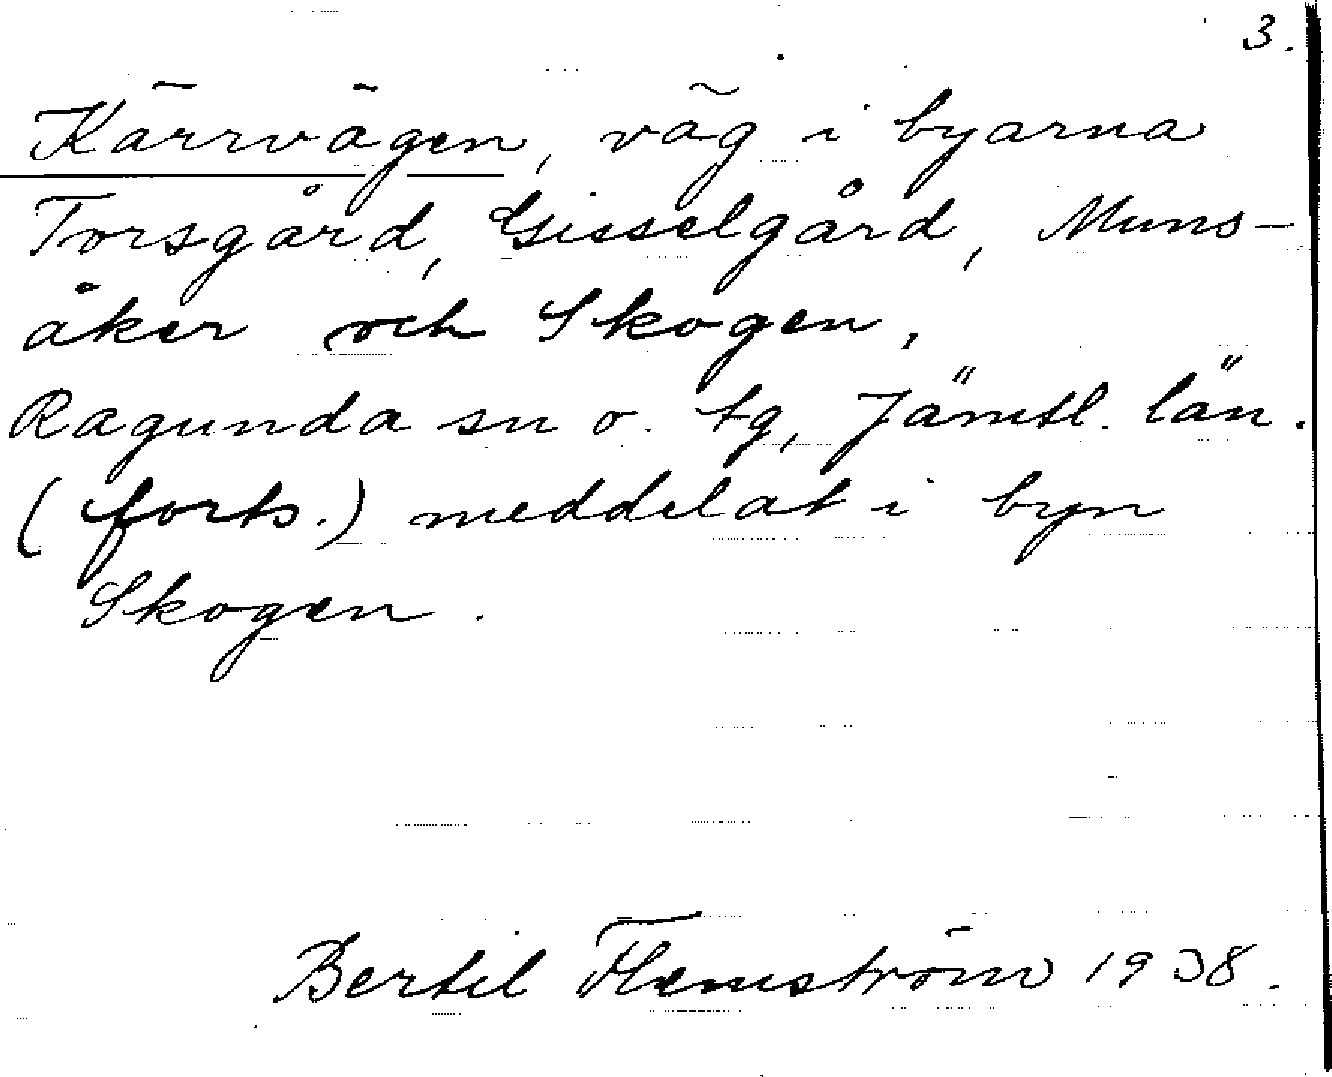 3.
Kärrvägen, väg i byarna
Torsgård, Gisselgård, Muns-
åker och Skogen,
Ragunda sn o. tg, Jämtl. län.
(forts.) meddelat i byn
Skogen.
Bertil Flemström 1938.